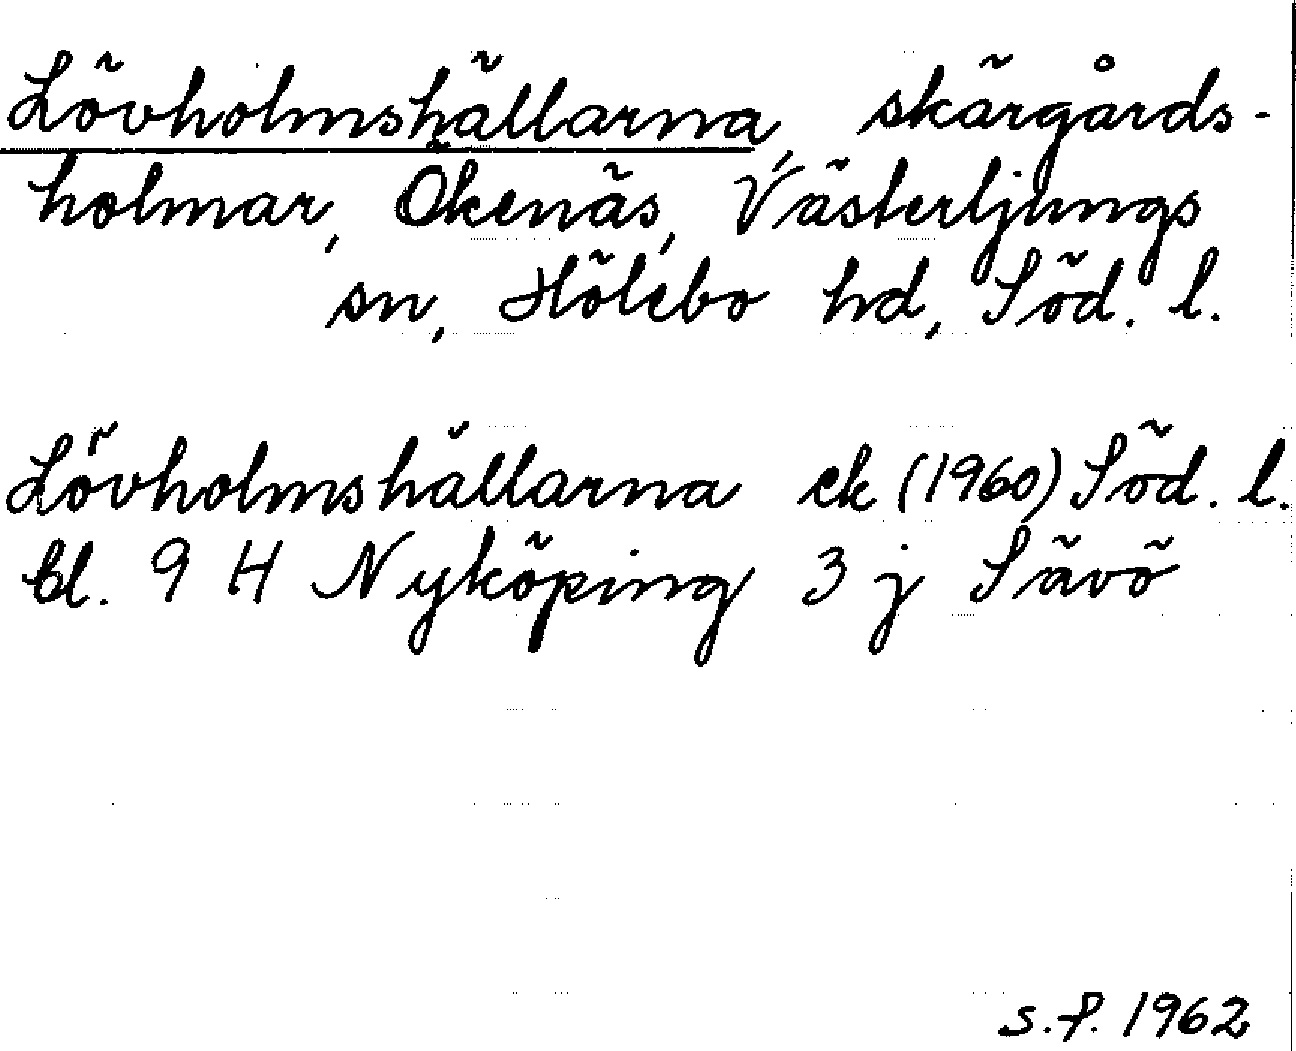 Lövholmshällarna, skärgårds-
holmar, Ökenäs, Västerljungs
sn, Hölebo hd, Söd. l.
Lövholmshällarna ek (1960) Söd. l.
bl. 9 H Nyköping 3 j Sävö
s.f. 1962